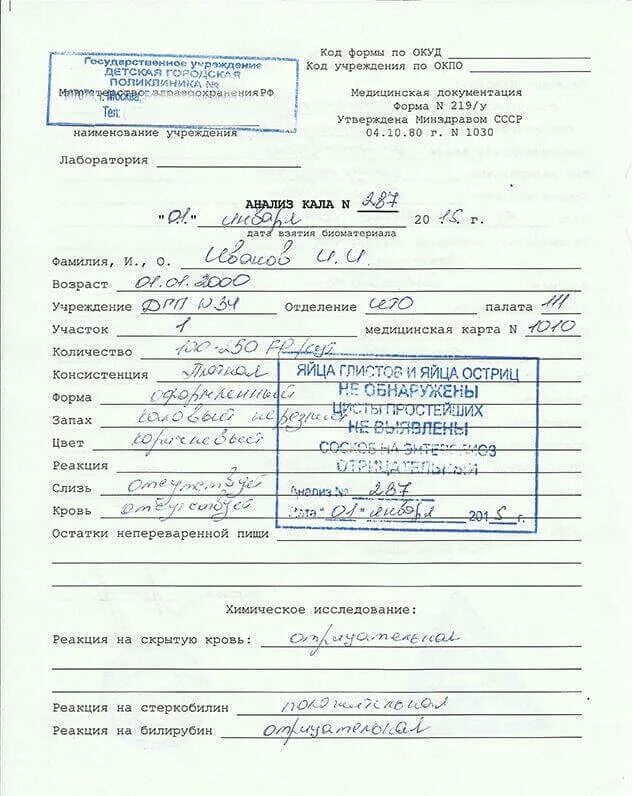 Код формы по ОКУД
Код учреждения по ОКПО
Государственное учреждение
ДЕТСКАЯ ГОРОДСКАЯ
ПОЛИКЛИНИКА №
Министерство здравоохранения РФ
г. Москва,
Тел:
наименование учреждения
Медицинская документация
Форма N 219/у
Утверждена Минздравом СССР
04.10.80 г. N 1030
Лаборатория
АНАЛИЗ КАЛА N 287
"01" января 2015 г.
дата взятия биоматериала
Фамилия, И., О. Иванов И. И.
Возраст 01.01.2000
Учреждение ДГП N34 Отделение палата 111
Участок 1 медицинская карта N 1010
Количество 100-250 гр/сут
Консистенция Плотная
Форма оформленный
Запах каловый нерезкий
Цвет коричневый
Реакция
Слизь отсутствует
Кровь отсутствует
ЯЙЦА ГЛИСТОВ И ЯЙЦА ОСТРИЦ
НЕ ОБНАРУЖЕНЫ
ЦИСТЫ ПРОСТЕЙШИХ
НЕ ВЫЯВЛЕНЫ
СОСКОБ НА ЭНТЕРОБИОЗ
ОТРИЦАТЕЛЬНЫЙ
Анализ № 287
Дата "01" января 2015 г.
Остатки непереваренной пищи
Химическое исследование:
Реакция на скрытую кровь: отрицательная
Реакция на стеркобилин положительная
Реакция на билирубин отрицательная